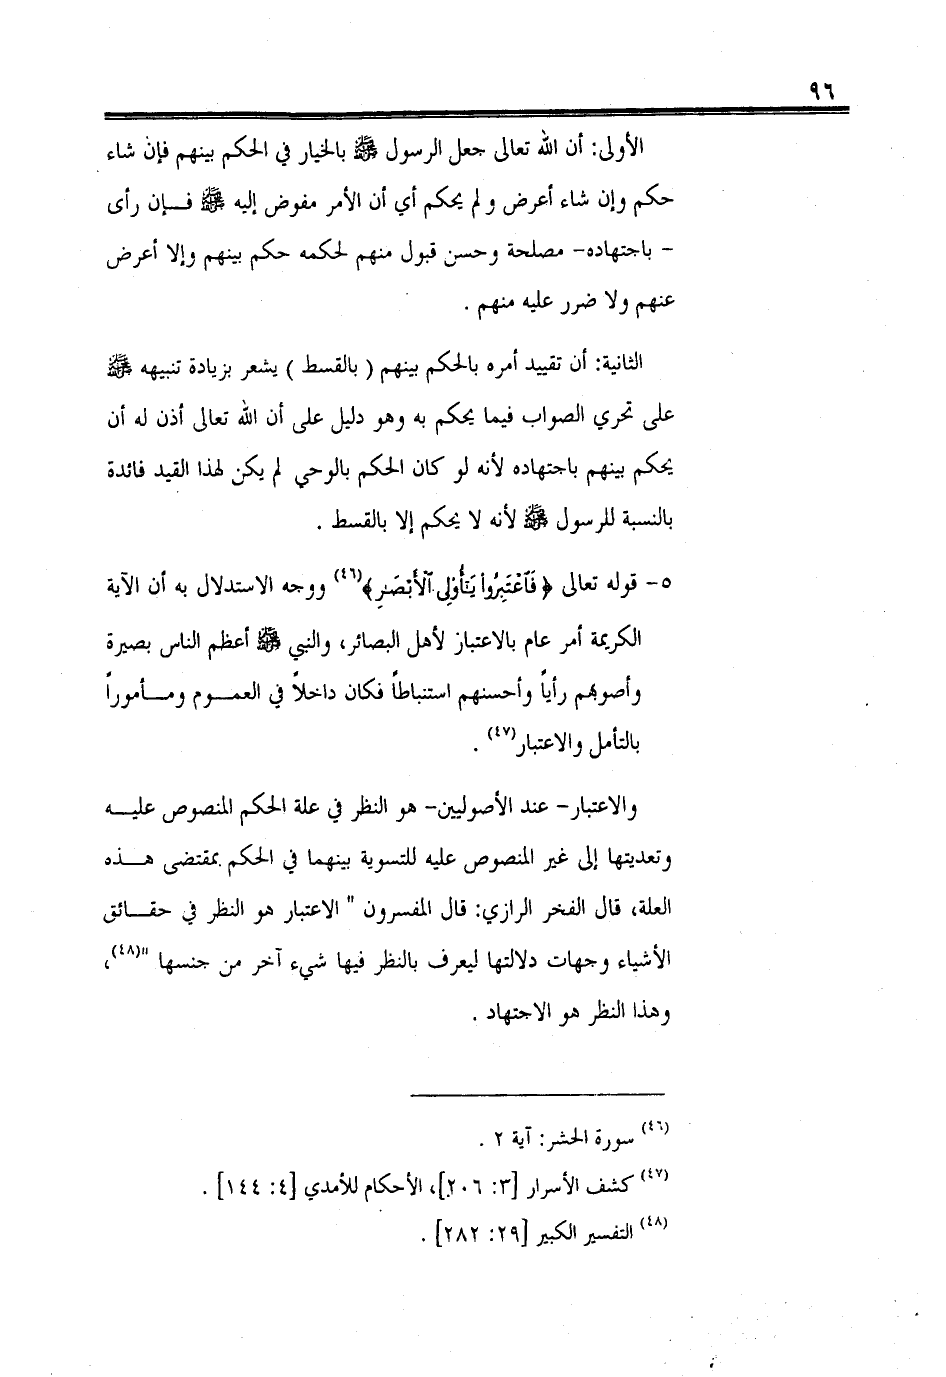 ٩٦
الأولى: أن الله تعالى جعل الرسول ﷺ بالخيار في الحكم بينهم فإن شاء
حكم وإن شاء أعرض ولم يحكم أي أن الأمر مفوض إليه ﷺ فـإن رأى
- باجتهاده- مصلحة وحسن قبول منهم لحكمه حكم بينهم وإلا أعرض
عنهم ولا ضرر عليه منهم .
الثانية: أن تقييد أمره بالحكم بينهم ( بالقسط ) يشعر بزيادة تنبيهه ﷺ
على تحري الصواب فيما يحكم به وهو دليل على أن الله تعالى أذن له أن
يحكم بينهم باجتهاده لأنه لو كان الحكم بالوحي لم يكن لهذا القيد فائدة
بالنسبة للرسول ﷺ لأنه لا يحكم إلا بالقسط .
٥- قوله تعالى ﴿ فَٱعْتَبِرُوا۟ يَـٰٓأُو۟لِى ٱلْأَبْصَـٰرِ ﴾(٤٦) ووجه الاستدلال به أن الآية
الكريمة أمر عام بالاعتباز لأهل البصائر، والنبي ﷺ أعظم الناس بصيرة
وأصوبهم رأياً وأحسنهم استنباطاً فكان داخلاً في العمـوم ومـأموراً
بالتأمل والاعتبار(٤٧) .
والاعتبار- عند الأصوليين- هو النظر في علة الحكم المنصوص عليـه
وتعديتها إلى غير المنصوص عليه للتسوية بينهما في الحكم بمقتضى هـذه
العلة، قال الفخر الرازي: قال المفسرون " الاعتبار هو النظر في حقـائق
الأشياء وجهات دلالتها ليعرف بالنظر فيها شيء آخر من جنسها "(٤٨)،
وهذا النظر هو الاجتهاد .
(٤٦) سورة الحشر: آية ٢ .
(٤٧) كشف الأسرار [٣: ٢٠٦]، الأحكام للأمدي [٤: ١٤٤] .
(٤٨) التفسير الكبير [٢٩: ٢٨٢] .